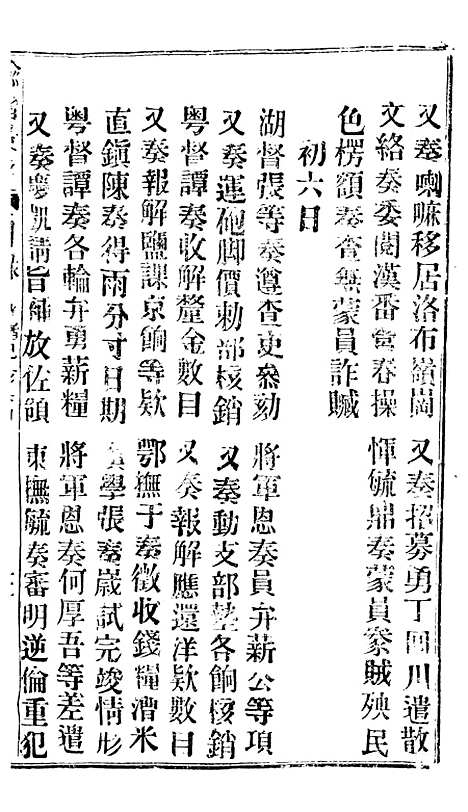 又奏喇嘛移居洛布嶺崗
又奏招募勇丁回川遣散
文絡奏委閱漢番營春操
惲毓鼎奏蒙員豢賊殃民
色楞額奏查無蒙員詐贓
初六日
湖督張等奏遵查吏叅劾
將軍恩奏員弁薪公等項
又奏運砲脚價勅部核銷
又奏動支部墊各餉核銷
粵督譚奏收解釐金數目
又奏報解應還洋欵數目
又奏報解鹽課京餉等欵
鄂撫于奏徵收錢糧漕米
直鎮陳奏得雨分寸日期
學張奏歲試完竣情形
粵督譚奏各輪弁勇薪糧
將軍恩奏何厚吾等差遣
又奏慶凱請旨補放佐領
東撫毓奏審明逆倫重犯